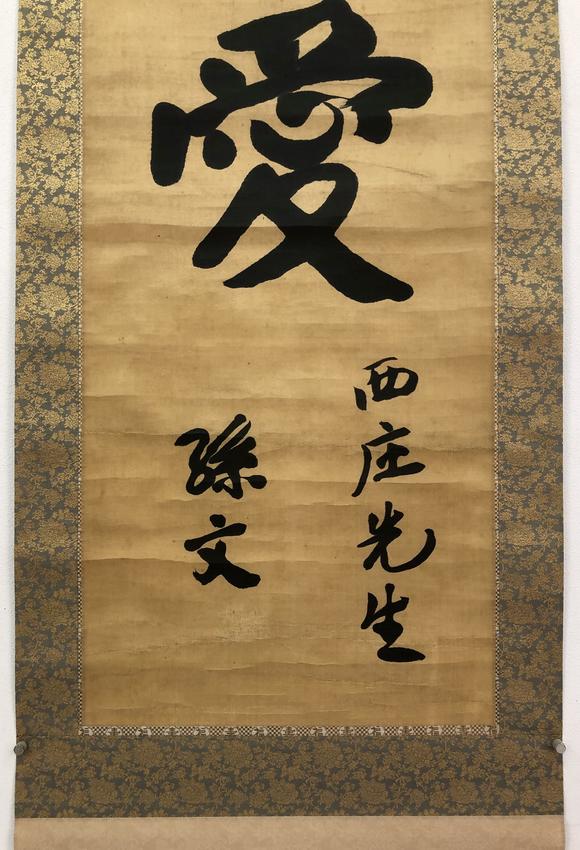 愛
西庄先生
孫文